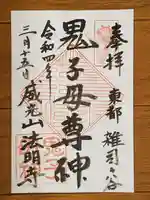 奉拝
東都 雑司ヶ谷
鬼子母尊神
令和四年
三月十五日
威光山 法明寺